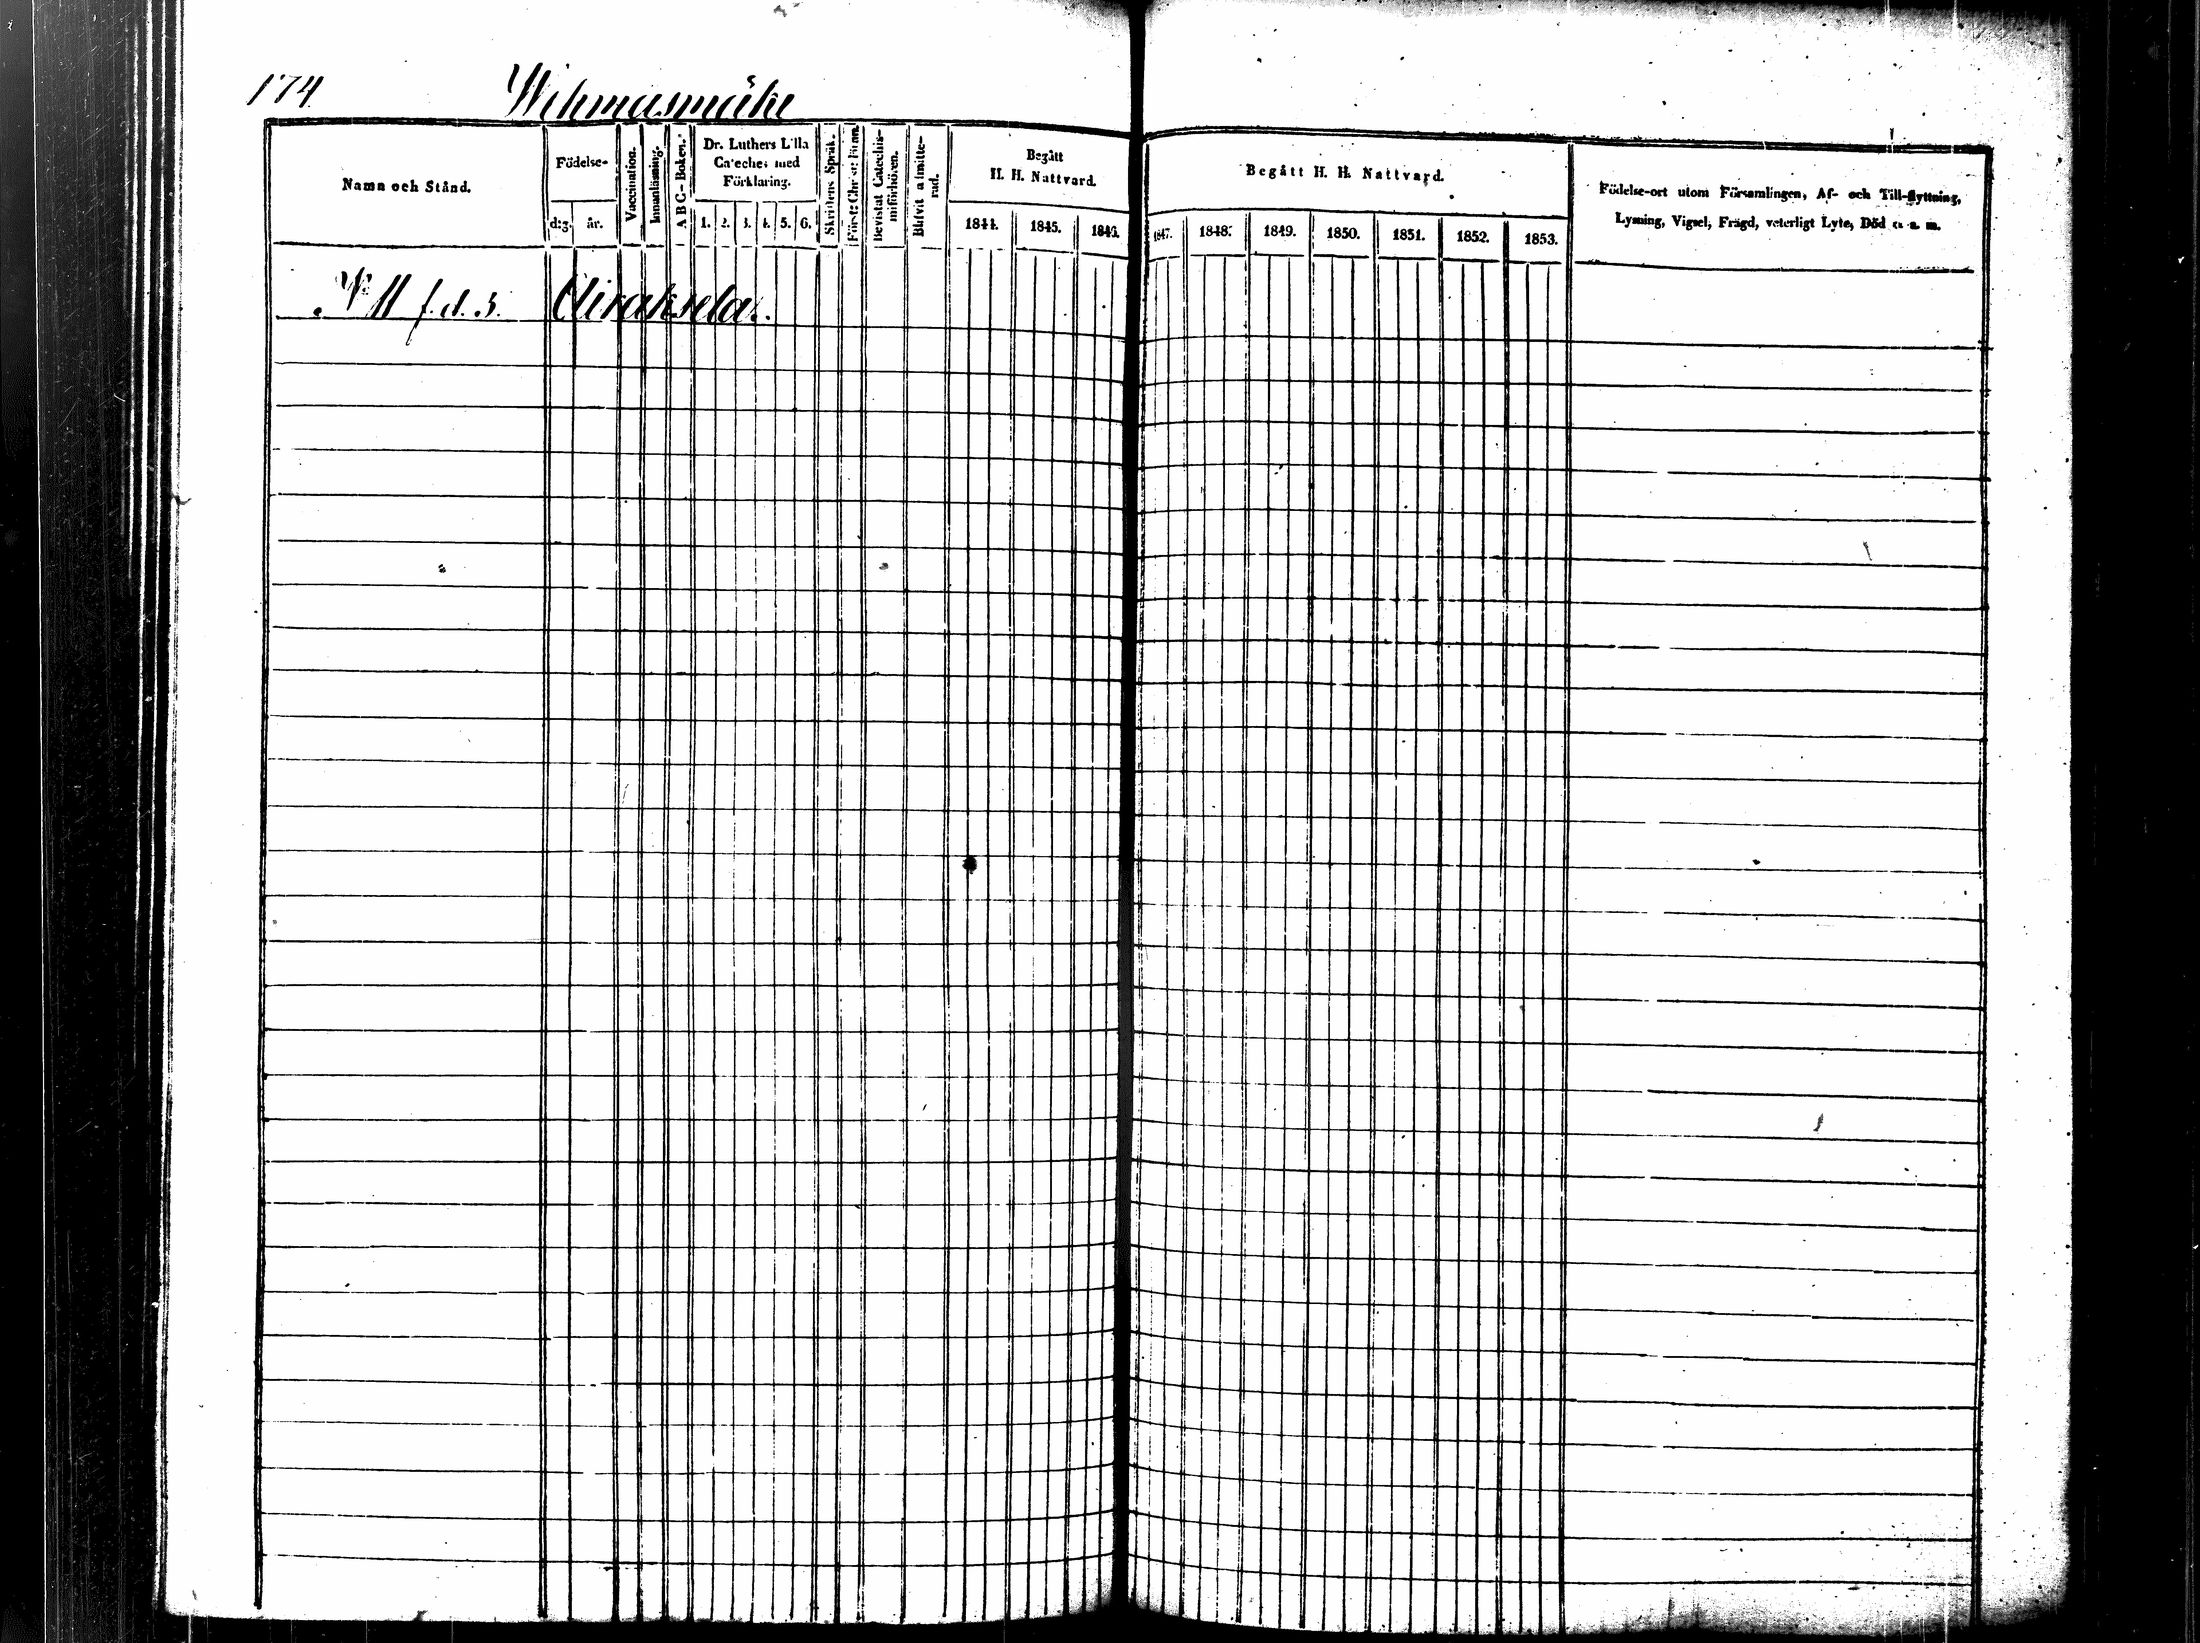 174 Wihmasmäki
Namn och Stånd.
Födelse-
dag. år.
Vaccination.
Innanläsning.
A B C-Boken.
Dr. Luthers Lilla
Cateches med
Förklaring.
1. 2. 3. 4. 5. 6.
Skriftens Språk.
Bevistat Catechis-
miförhören.
Blifvit admitte-
rad.
Begått
H. H. Nattvard.
1844. 1845. 1846.
Begått H. H. Nattvard.
1847. 1848. 1849. 1850. 1851. 1852. 1853.
Födelse-ort utom Församlingen, Af- och Till-flyttning,
Lysning, Vigsel, Frägd, veterligt Lyte, Död m. m.
f. d. 3.